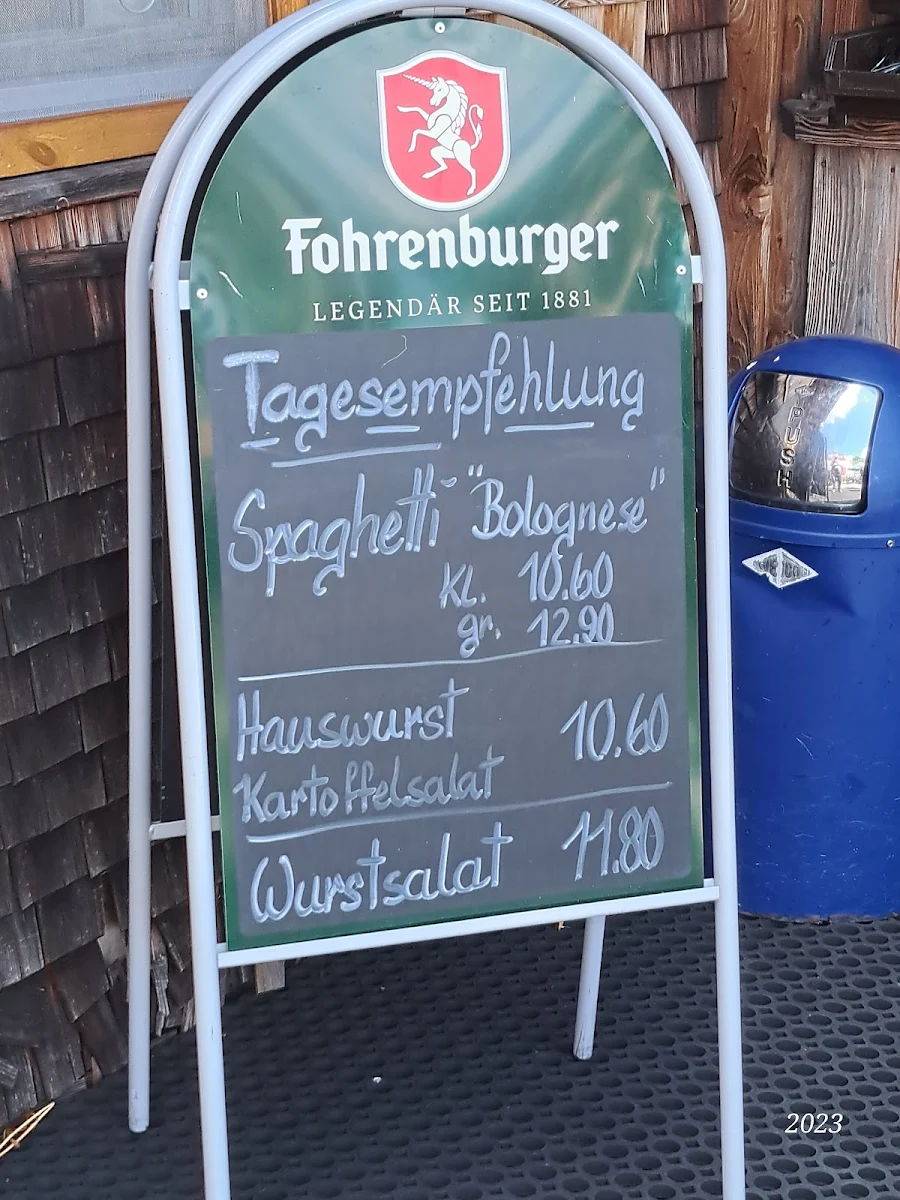 Fohrenburger
LEGENDÄR SEIT 1881
Tagesempfehlung
Spaghetti "Bolognese"
Kl. 10.60
gr. 12.90
Hauswurst 10.60
Kartoffelsalat
Wurstsalat 11.80
PUSH
2023